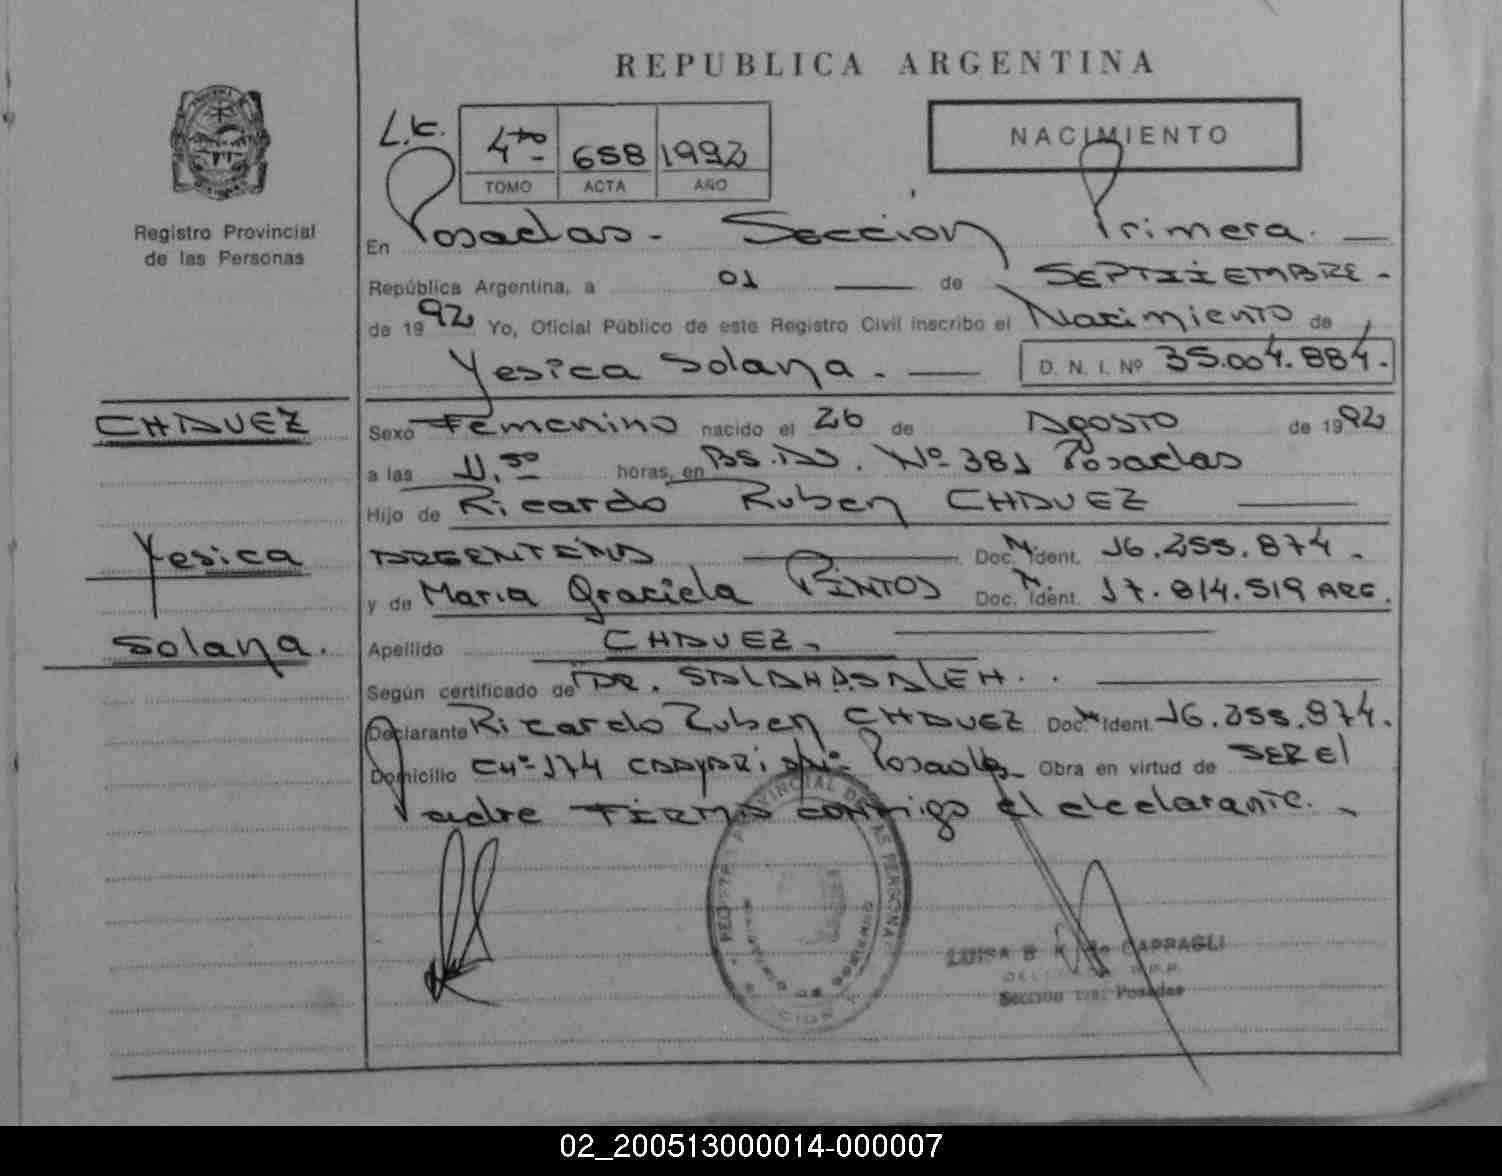 REPUBLICA ARGENTINA
NACIMIENTO
4to 658 1992
TOMO ACTA AÑO
Registro Provincial
de las Personas
En Posadas - Sección Primera.
República Argentina, a 01 de SEPTIIEMBRE -
de 1992 Yo, Oficial Público de este Registro Civil inscribo el Nacimiento de
Yesica Solana. - D. N. I. Nº 35.004.884.
CHAVEZ
Sexo Femenino nacido el 26 de Agosto de 1992
a las 11.30 horas, en BS.AS. Nº 381 Posadas
Hijo de Ricardo Ruben CHAVEZ
Yesica
ARGENTINA Doc. N. Ident. 16.255.874.
y de Maria Graciela PINTOS Doc. N. Ident. 17.814.519 ARG.
Solana.
Apellido CHAVEZ.
Según certificado de DR. SALAHASALEH.
Declarante Ricardo Ruben CHAVEZ Doc. N Ident. 16.255.874.
Domicilio CHº 174 Posadas Obra en virtud de SER El
Padre FIRMA conmigo el declarante.
LUISA B K de CAPPAGLI
Sección 1ra. Posadas
02_200513000014-000007